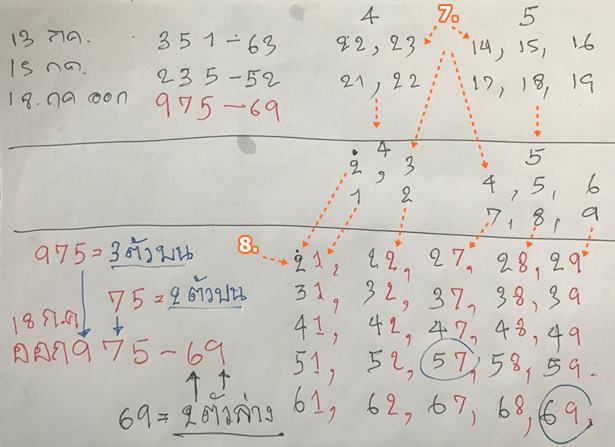 4 7. 5
13 กค. 351-63 22, 23 14, 15, 16
15 กค. 235-52 21, 22 17, 18, 19
18. กค ออก 975-69
4 5
2, 3 4, 5, 6
1 2 7, 8, 9
8.
975 = 3ตัวบน 21, 22, 27, 28, 29
75 = 2ตัวบน 31, 32, 37, 38, 39
18 ก.ค. 41, 42, 47, 48, 49
ออก975-69 51, 52, 57, 58, 59.
69 = 2ตัวล่าง 61, 62, 67, 68, 69,